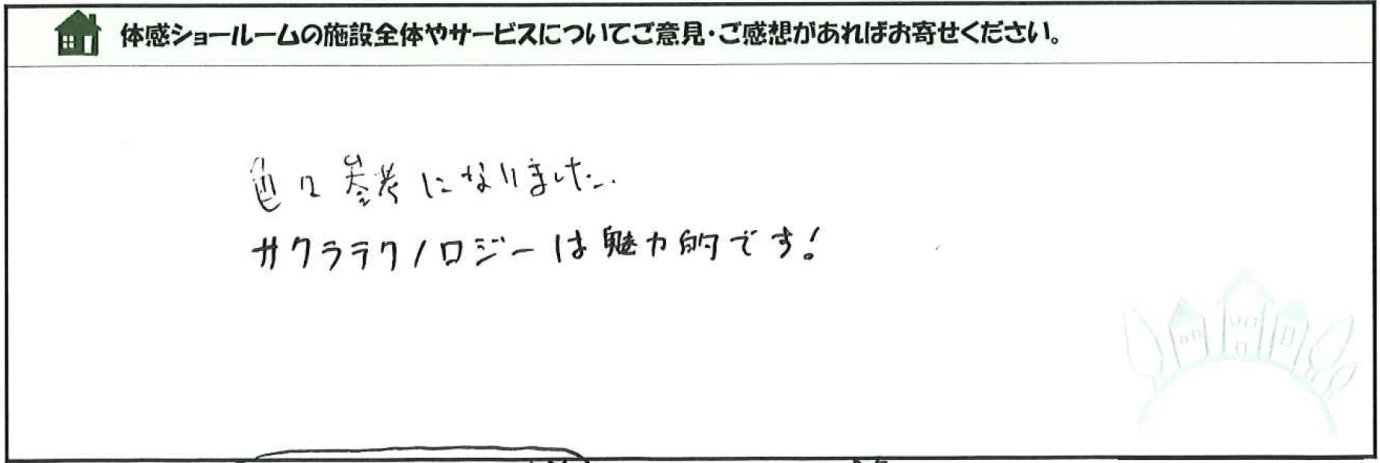 体感ショールームの施設全体やサービスについてご意見・ご感想があればお寄せください。
色々参考になりました。
サクラテクノロジーは魅力的です!